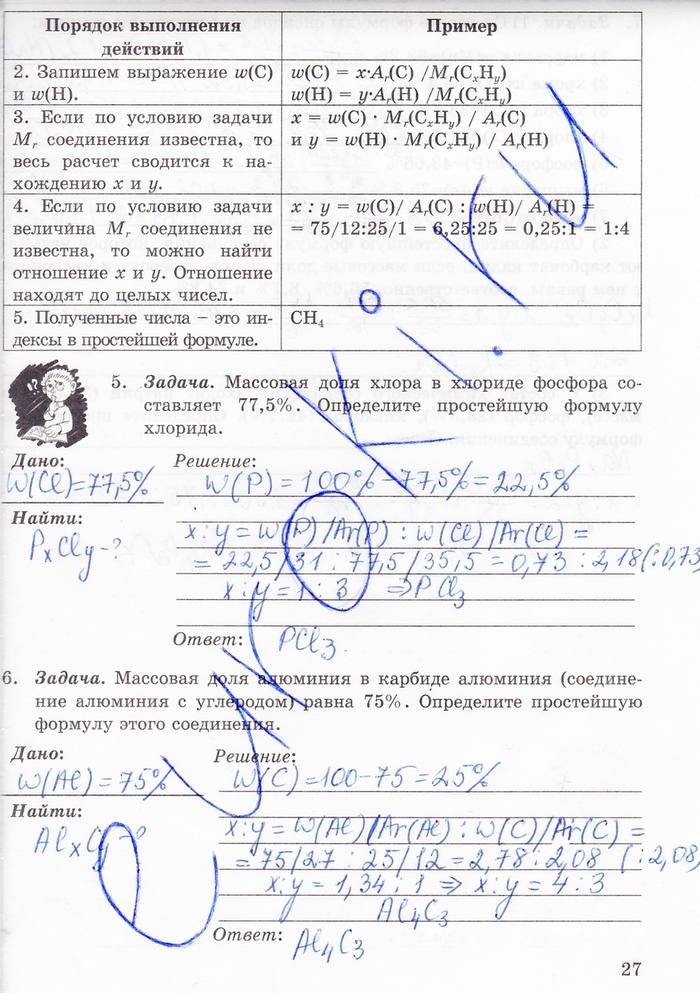 Порядок выполнения действий
Пример
2. Запишем выражение w(C)
и w(H).
w(C) = x·Ar(C) /Mr(CxHy)
w(H) = y·Ar(H) /Mr(CxHy)
3. Если по условию задачи
Mr соединения известна, то
весь расчет сводится к на-
хождению x и y.
x = w(C) · Mr(CxHy) / Ar(C)
и y = w(H) · Mr(CxHy) / Ar(H)
4. Если по условию задачи
величина Mr соединения не
известна, то можно найти
отношение x и y. Отношение
находят до целых чисел.
x : y = w(C)/ Ar(C) : w(H)/ Ar(H) =
= 75/12:25/1 = 6,25:25 = 0,25:1 = 1:4
5. Полученные числа – это ин-
дексы в простейшей формуле.
CH4
5. Задача. Массовая доля хлора в хлориде фосфора со-
ставляет 77,5%. Определите простейшую формулу
хлорида.
Дано:
Решение:
W(Cl)=77,5%
W(P)=100%-77,5%=22,5%
Найти:
PxCly-?
x:y=W(P)/Ar(P) : W(Cl)/Ar(Cl)=
=22,5/31 : 77,5/35,5=0,73 : 2,18(:0,73
x:y=1:3 ⇒PCl3
Ответ: PCl3.
6. Задача. Массовая доля алюминия в карбиде алюминия (соедине-
ние алюминия с углеродом) равна 75%. Определите простейшую
формулу этого соединения.
Дано:
Решение:
W(Al)=75%
W(C)=100-75=25%
Найти:
AlxCy-?
x:y=W(Al)/Ar(Al) : W(C)/Ar(C)=
=75/27 : 25/12=2,78:2,08 (:2,08)
x:y=1,34:1 ⇒ x:y=4:3
Al4C3
Ответ: Al4C3
27